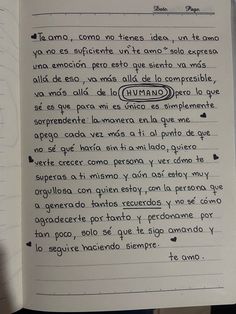 Date. Page.
Te amo, como no tienes idea, un te amo
ya no es suficiente un "te amo" solo expresa
una emoción pero esto que siento va más
allá de eso, va más allá de lo compresible,
va más allá de lo (HUMANO) pero lo que
sé es que para mi es único es simplemente
sorprendente la manera en la que me
apego cada vez más a ti al punto de que
no sé qué haría sin ti a mi lado, quiero
verte crecer como persona y ver cómo te
superas a ti mismo y aún así estoy muy
orgullosa con quien estoy, con la persona que
a generado tantos recuerdos y no sé cómo
agradecerte por tanto y perdoname por
tan poco, solo sé que te sigo amando y
lo seguire haciendo siempre.
te amo.